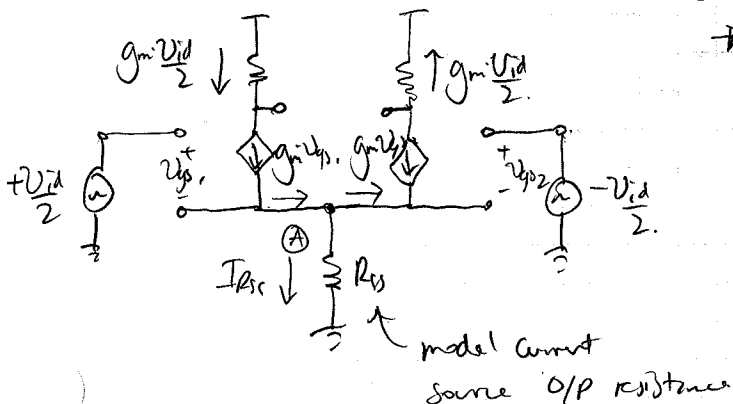 gm·vid/2 ↓
↑ gm·vid/2.
+vid/2
+ vgs1 -
gm vgs1
gm vgs2
+ vgs2 -
-vid/2.
A
IRss ↓
Rss
model current
source O/P resistance